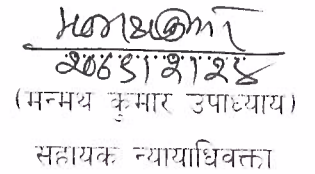 २०७९।२।२४
(मन्मथ कुमार उपाध्याय)
सहायक न्यायाधिवक्ता